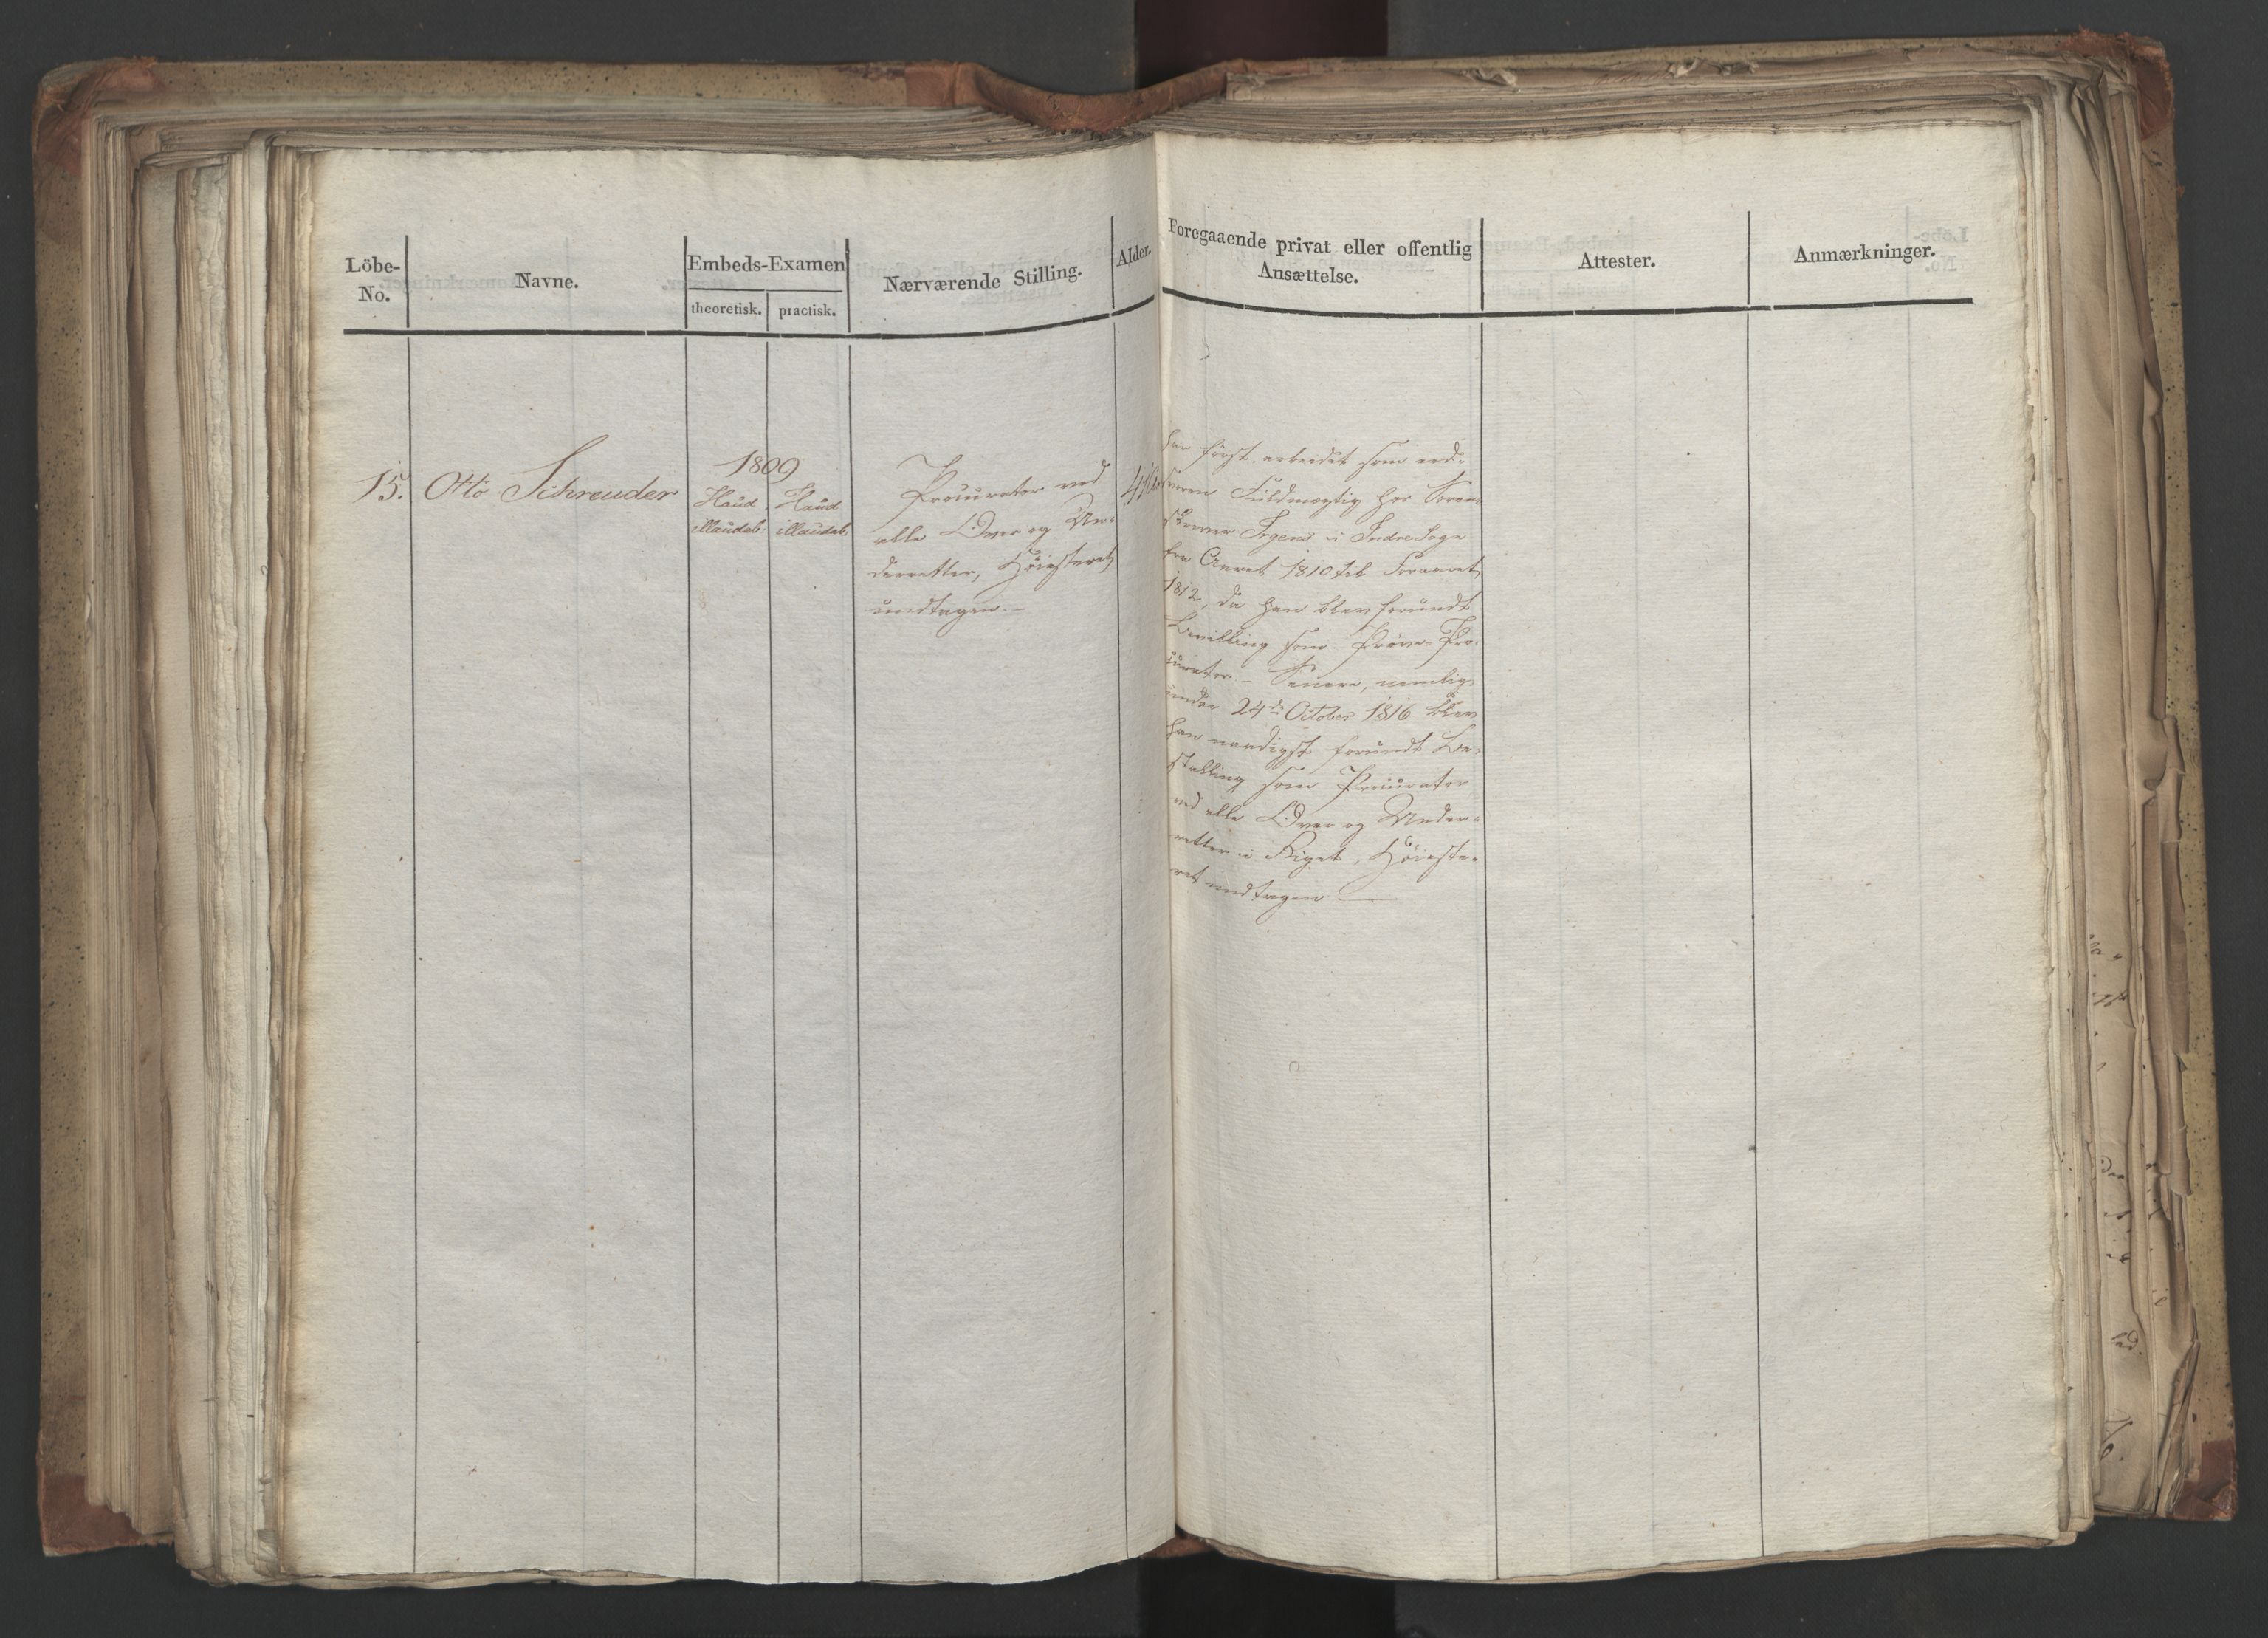 Löbe-
No.
Navne.
Embeds-Examen
theoretisk.
practisk.
Nærværende Stilling.
Alder.
Foregaaende privat eller offentlig
Ansættelse.
Attester.
Anmærkninger.
15.
Otto Schreuder
1809
Haud
illaudab.
Haud
illaudab.
Procurator ved
alle Over og Un-
derretter, Höiesteret
undtagen.-
har först arbeidet som eed-
svoren Fuldmægtig hos Soren-
skriver Irgens i Indre Sogn
fra Aaret 1810 til Foraaret
1812, da han blev forundt
Bevilling som Pröve-Pro-
curator - Senere, nemlig
under 24de October 1816 blev
han naadigst forundt Be-
stalling som Procurator
ved alle Over og Under-
retter i Riget, Höieste-
ret undtagen